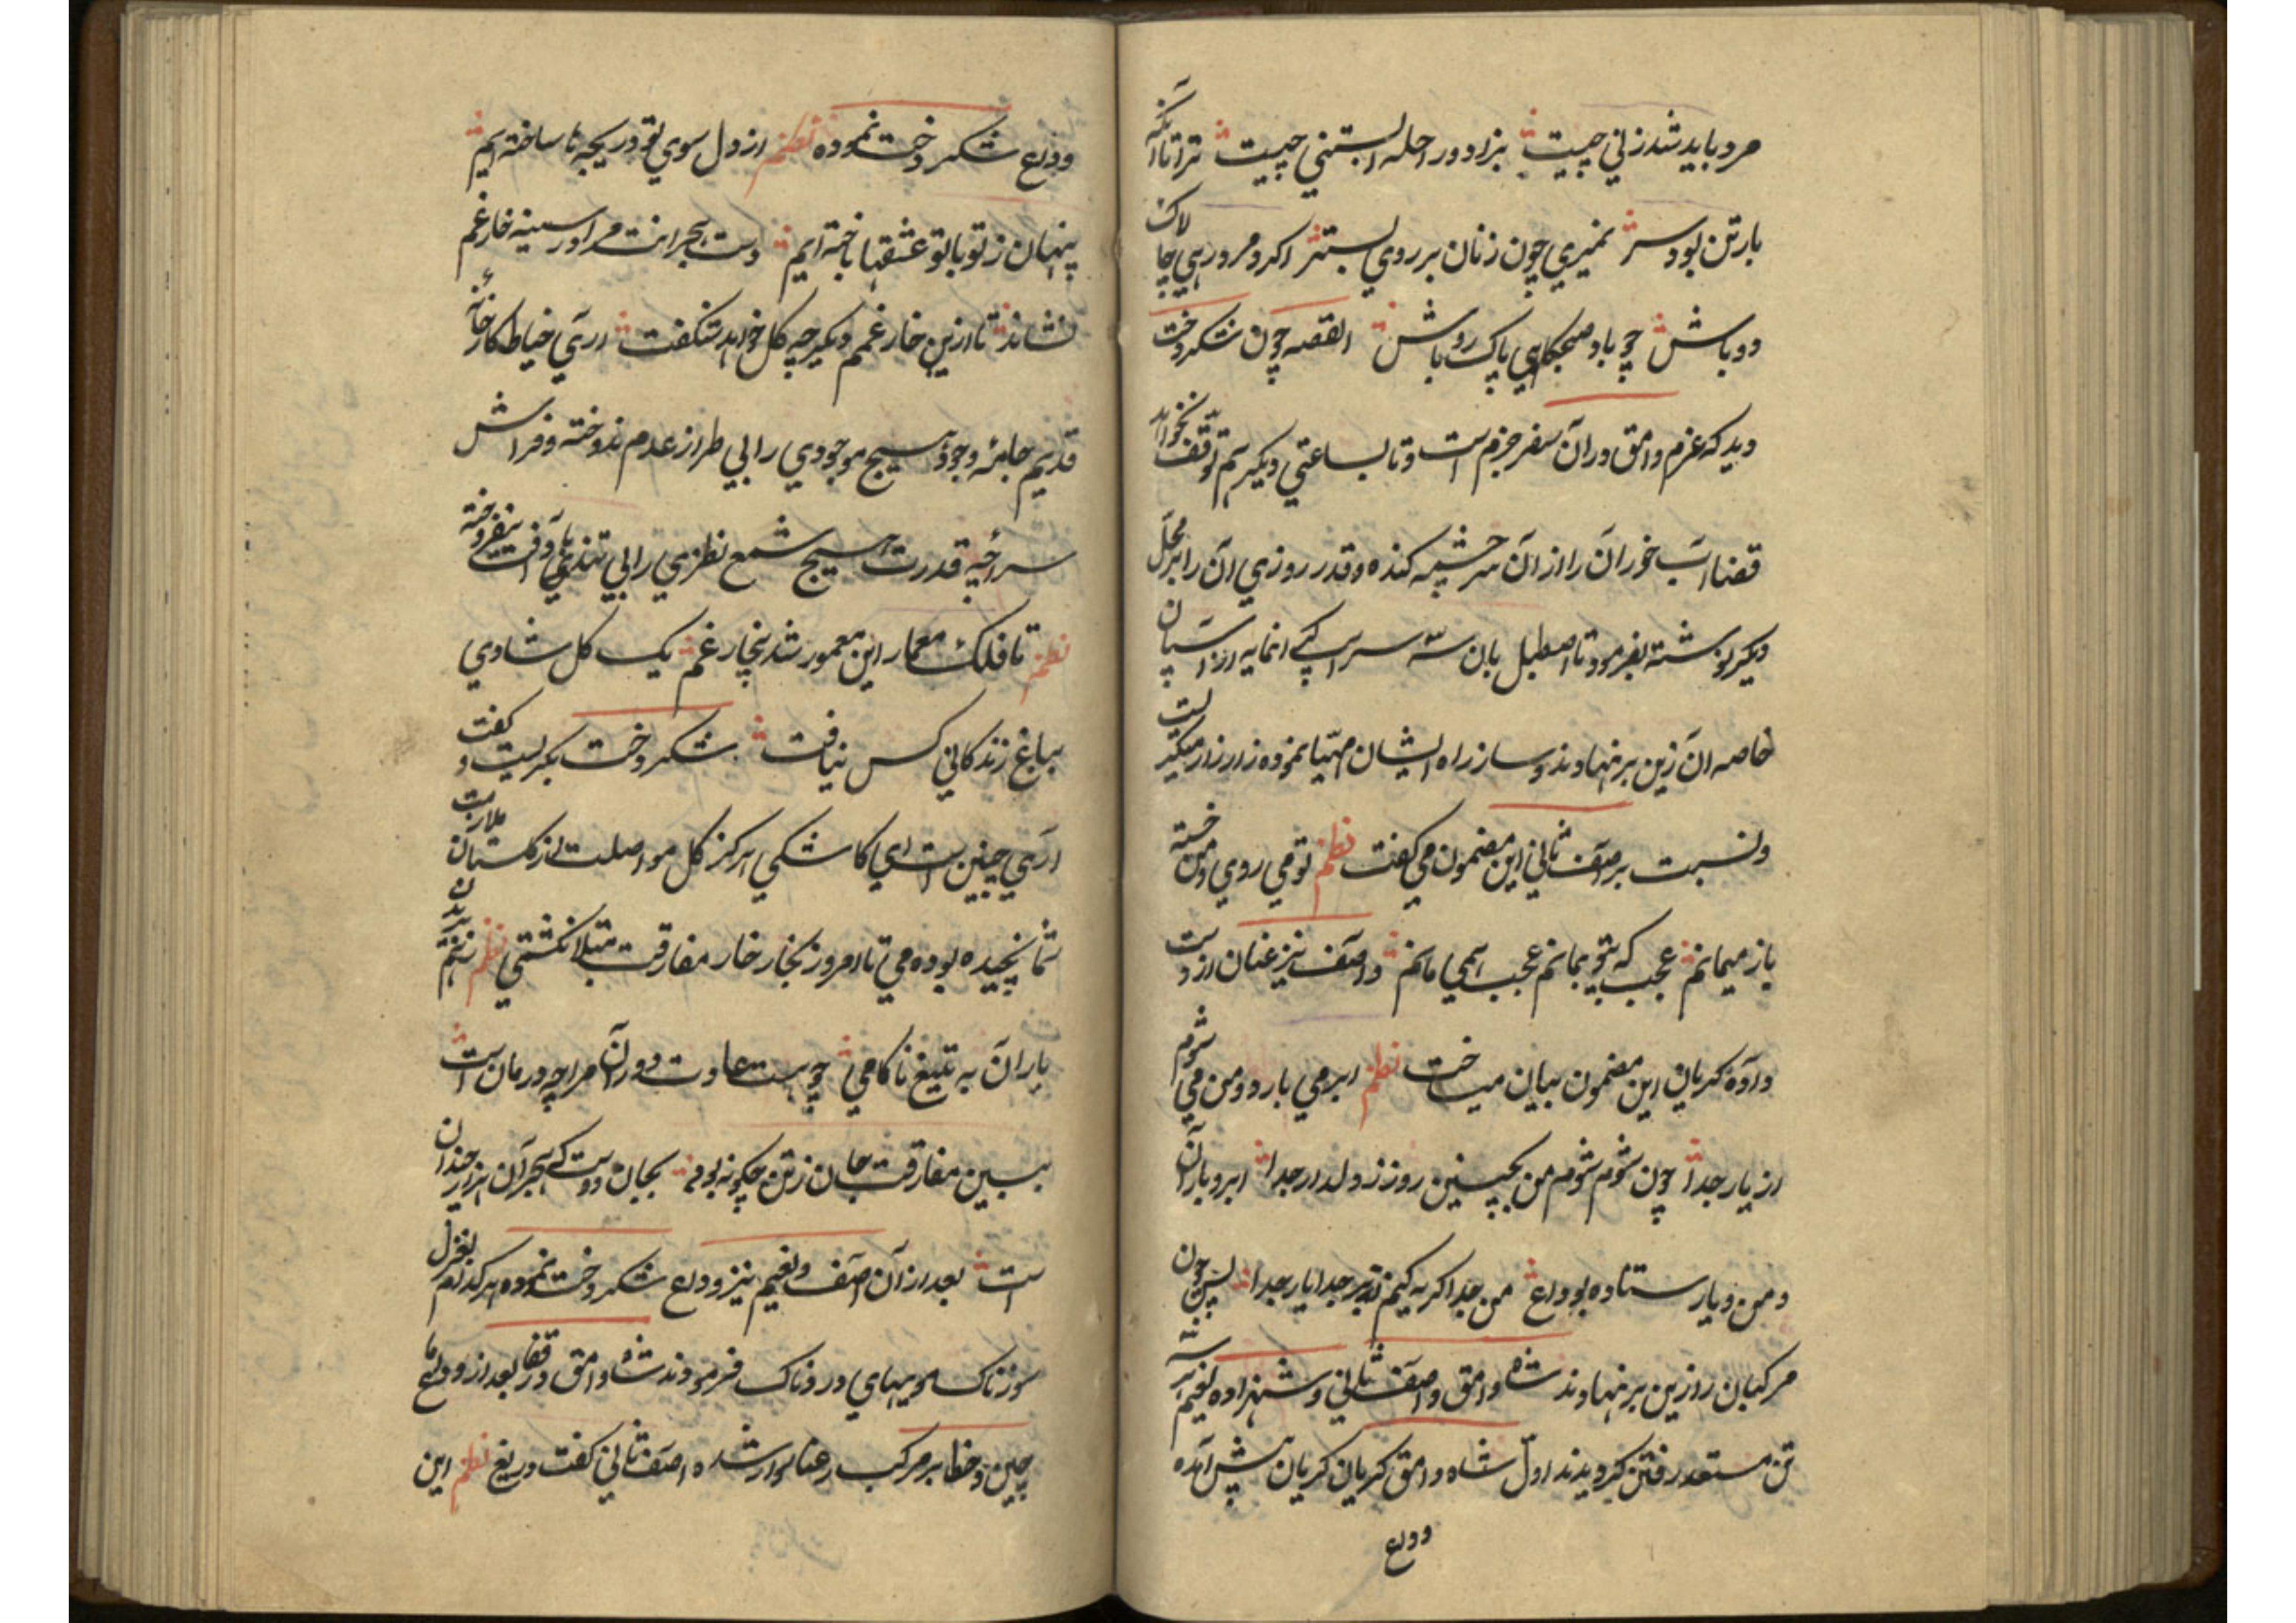 مرد باید شد زنی چیست بزاد و راحله ابستنی چیست ترا تا آنکه
بار تن بود سر نمیری چون زنان بر روی بستر اکر و مرد رهی چالاک
رو باش چو باد صبحکاهی پاک رو باش القصه چون شکر دخت
دید که عزم وامق در آن سفر جزم است و تا ساعتی دیکر هم توقف نخواهد
قضا آب خوران را از آن سرچشمه کنده و قدر روزی آن را بر محل
دیکر نوشته بفرمود تا اصطبل بان سه سر اسپ کی انمایه از اسپان
خاصه آن زین بر نهادند و ساز راه ایشان مهیا نموده زار زار میکریست
و نسبت بر آصف ثانی این مضمون می کفت نظم تو می روی و من خسته
باز میمانم عجب که بی تو بمانم عجب همی مانم و آصف نیز عنان از دست
داده کریان این مضمون بیان میساخت نظم ابر می بارد و من می شوم
از یار جدا چون شوم شوم من بچنین روز ز دلدار جدا ابر و باران
و من و یار ستاده بوداع من جدا کریه کنم ابر جدا یار جدا پس چون
مرکبان را زین بر نهادند شاه وامق و آصف ثانی و شهزاده نعیم هر سه
تن مستعد رفتن کردیدند اول شاه وامق کریان کریان پیش آمده
وداع
وداع شکر دخت نموده نظم از دل سوی تو دریچه ها ساخته ایم
پنهان ز تو با تو عشقها باخته ایم دست هجرانت مرا در سینه خار غم
نشاند تا ازین خار غمم دیکر چه کل خواهد شکفت آری خیاط کارخانهٔ
قدیم جامهٔ وجود هیچ موجودی را بی طراز عدم ندوخته و فراش
سراچهٔ قدرت هیچ شمع نظری را بی تندباد آفت نیفروخته
نظم تا فلک معمار این معمور شد بخار غم یک کل شادی
بباغ زندکانی کس نیافت شکر دخت بکریست و کفت
آری چنین است ای کاشکی هرکز کل مواصلت از کلستان ملاقات
شما نچیده بودمی تا امروز بخار خار مفارقت مبتلا نکشتمی نظم
یاران به تیغ ناکامی چو هست عادت دوران مرا چه درمان است
ببین مفارقت جان ز تن چکونه بود بجان دوست که هجران هزار چندان
است بعد از آن آصف و نعیم نیز وداع شکر دخت نموده هر کدام بغزل
سوزناک و بیتهای دردناک فرمودند شاه وامق در قفا بعد از وداع
چین و خطا بر مرکب رعنا سوار شده آصف ثانی کفت دریغ نظم این